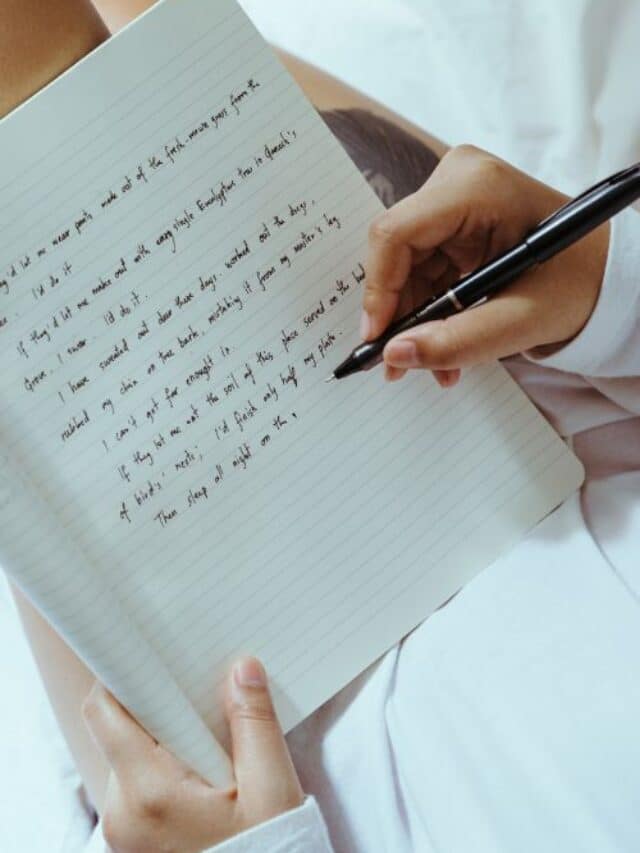 they'd let me wear pants made out of the fresh-wrote grass from the
I'd do it
If they'd let me make out with every single Eucalyptus tree in
Grove, I swear. I'd do it.
I have sweated out dear these days, worked out the days,
my chin on the bark, mistaking it from my master's leg
I can't get far enough in.
If they let me eat the soil of this place served on the bed
of birds' nests; I'd finish only half my plate.
Then sleep all night on the